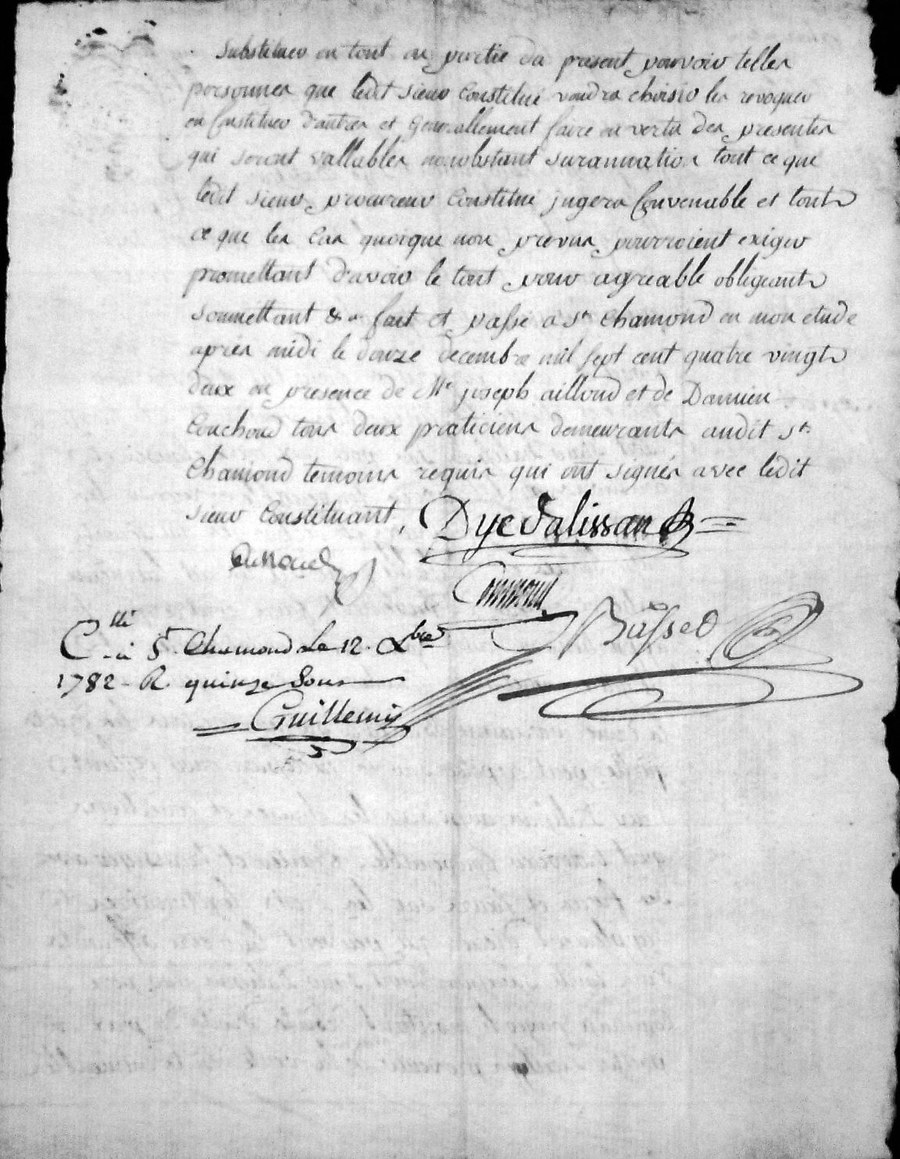 Substituer en tout ou partie du present pouvoir telles
personnes que ledit sieur Constitué voudra choisir les revoquer
en Constituer d'autres et Generallement faire en vertu des presentes
qui seront vallables nonobstant surannation tout ce que
ledit sieur procureur Constitué jugera Convenable et tout
ce que les Cas quoique non prevus pourroient exiger
promettant d'avoir le tout pour agreable obligeant
soumettant &a fait et passé a St. Chamond en mon etude
après midi le douze decembre mil sept cent quatre vingt
deux en presence de Me. joseph ailloud et de Damien
Couchoud tous deux praticiens demeurants audit St.
Chamond temoins requis qui ont signés avec ledit
sieur Constituant,
Dye Valissan
Basset
Clle. à St. Chamond Le 12. Xbre
1782 - R. quinze Sous
Guillemin